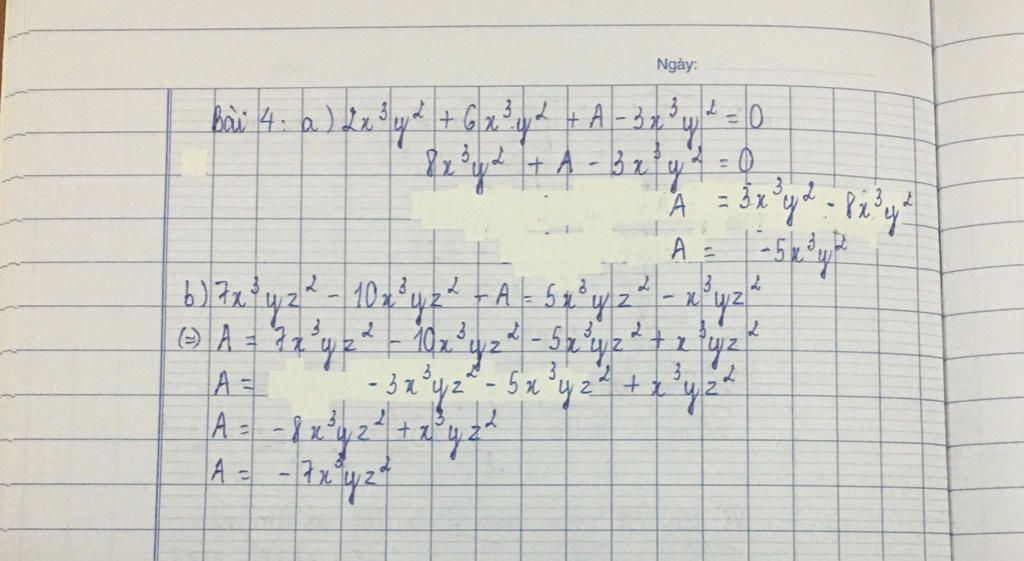 Ngày:
Bài 4: a) 2x³y² + 6x³y² + A - 3x³y² = 0
8x³y² + A - 3x³y² = 0
A = 3x³y² - 8x³y²
A = -5x³y²
b) 7x³yz² - 10x³yz² - A = 5x³yz² - x³yz²
(=) A = 7x³yz² - 10x³yz² - 5x³yz² + x³yz²
A = -3x³yz² - 5x³yz² + x³yz²
A = -8x³yz² + x³yz²
A = -7x³yz²